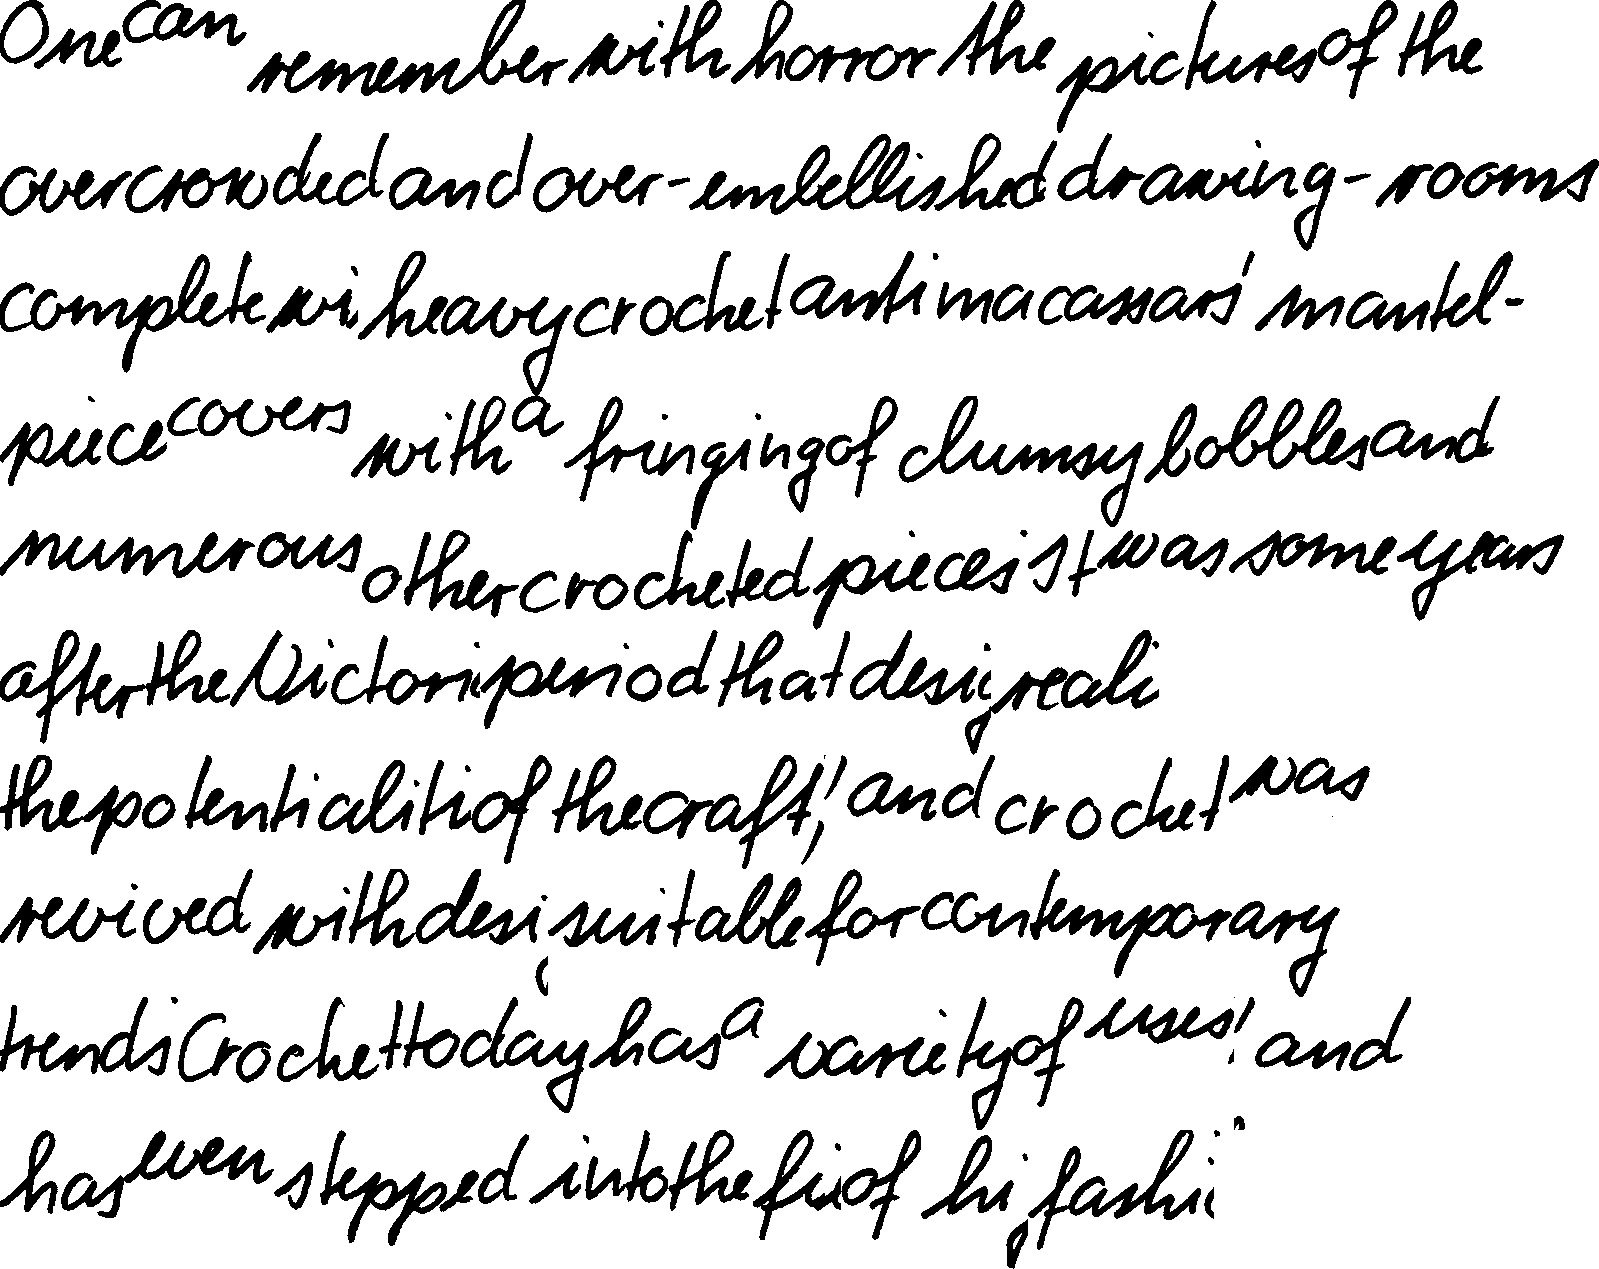 One can remember with horror the pictures of the
overcrowded and over-embellished drawing-rooms
complete wi heavy crochet antimacassars' mantel-
piece covers with a fringing of clumsy bobbles and
numerous other crocheted pieces it was some years
after the Victori period that desig reali
the potentialiti of the craft, and crochet was
revived with desi suitable for contemporary
trends Crochet today has a variety of uses and
has even stepped into the fi of hi fashi